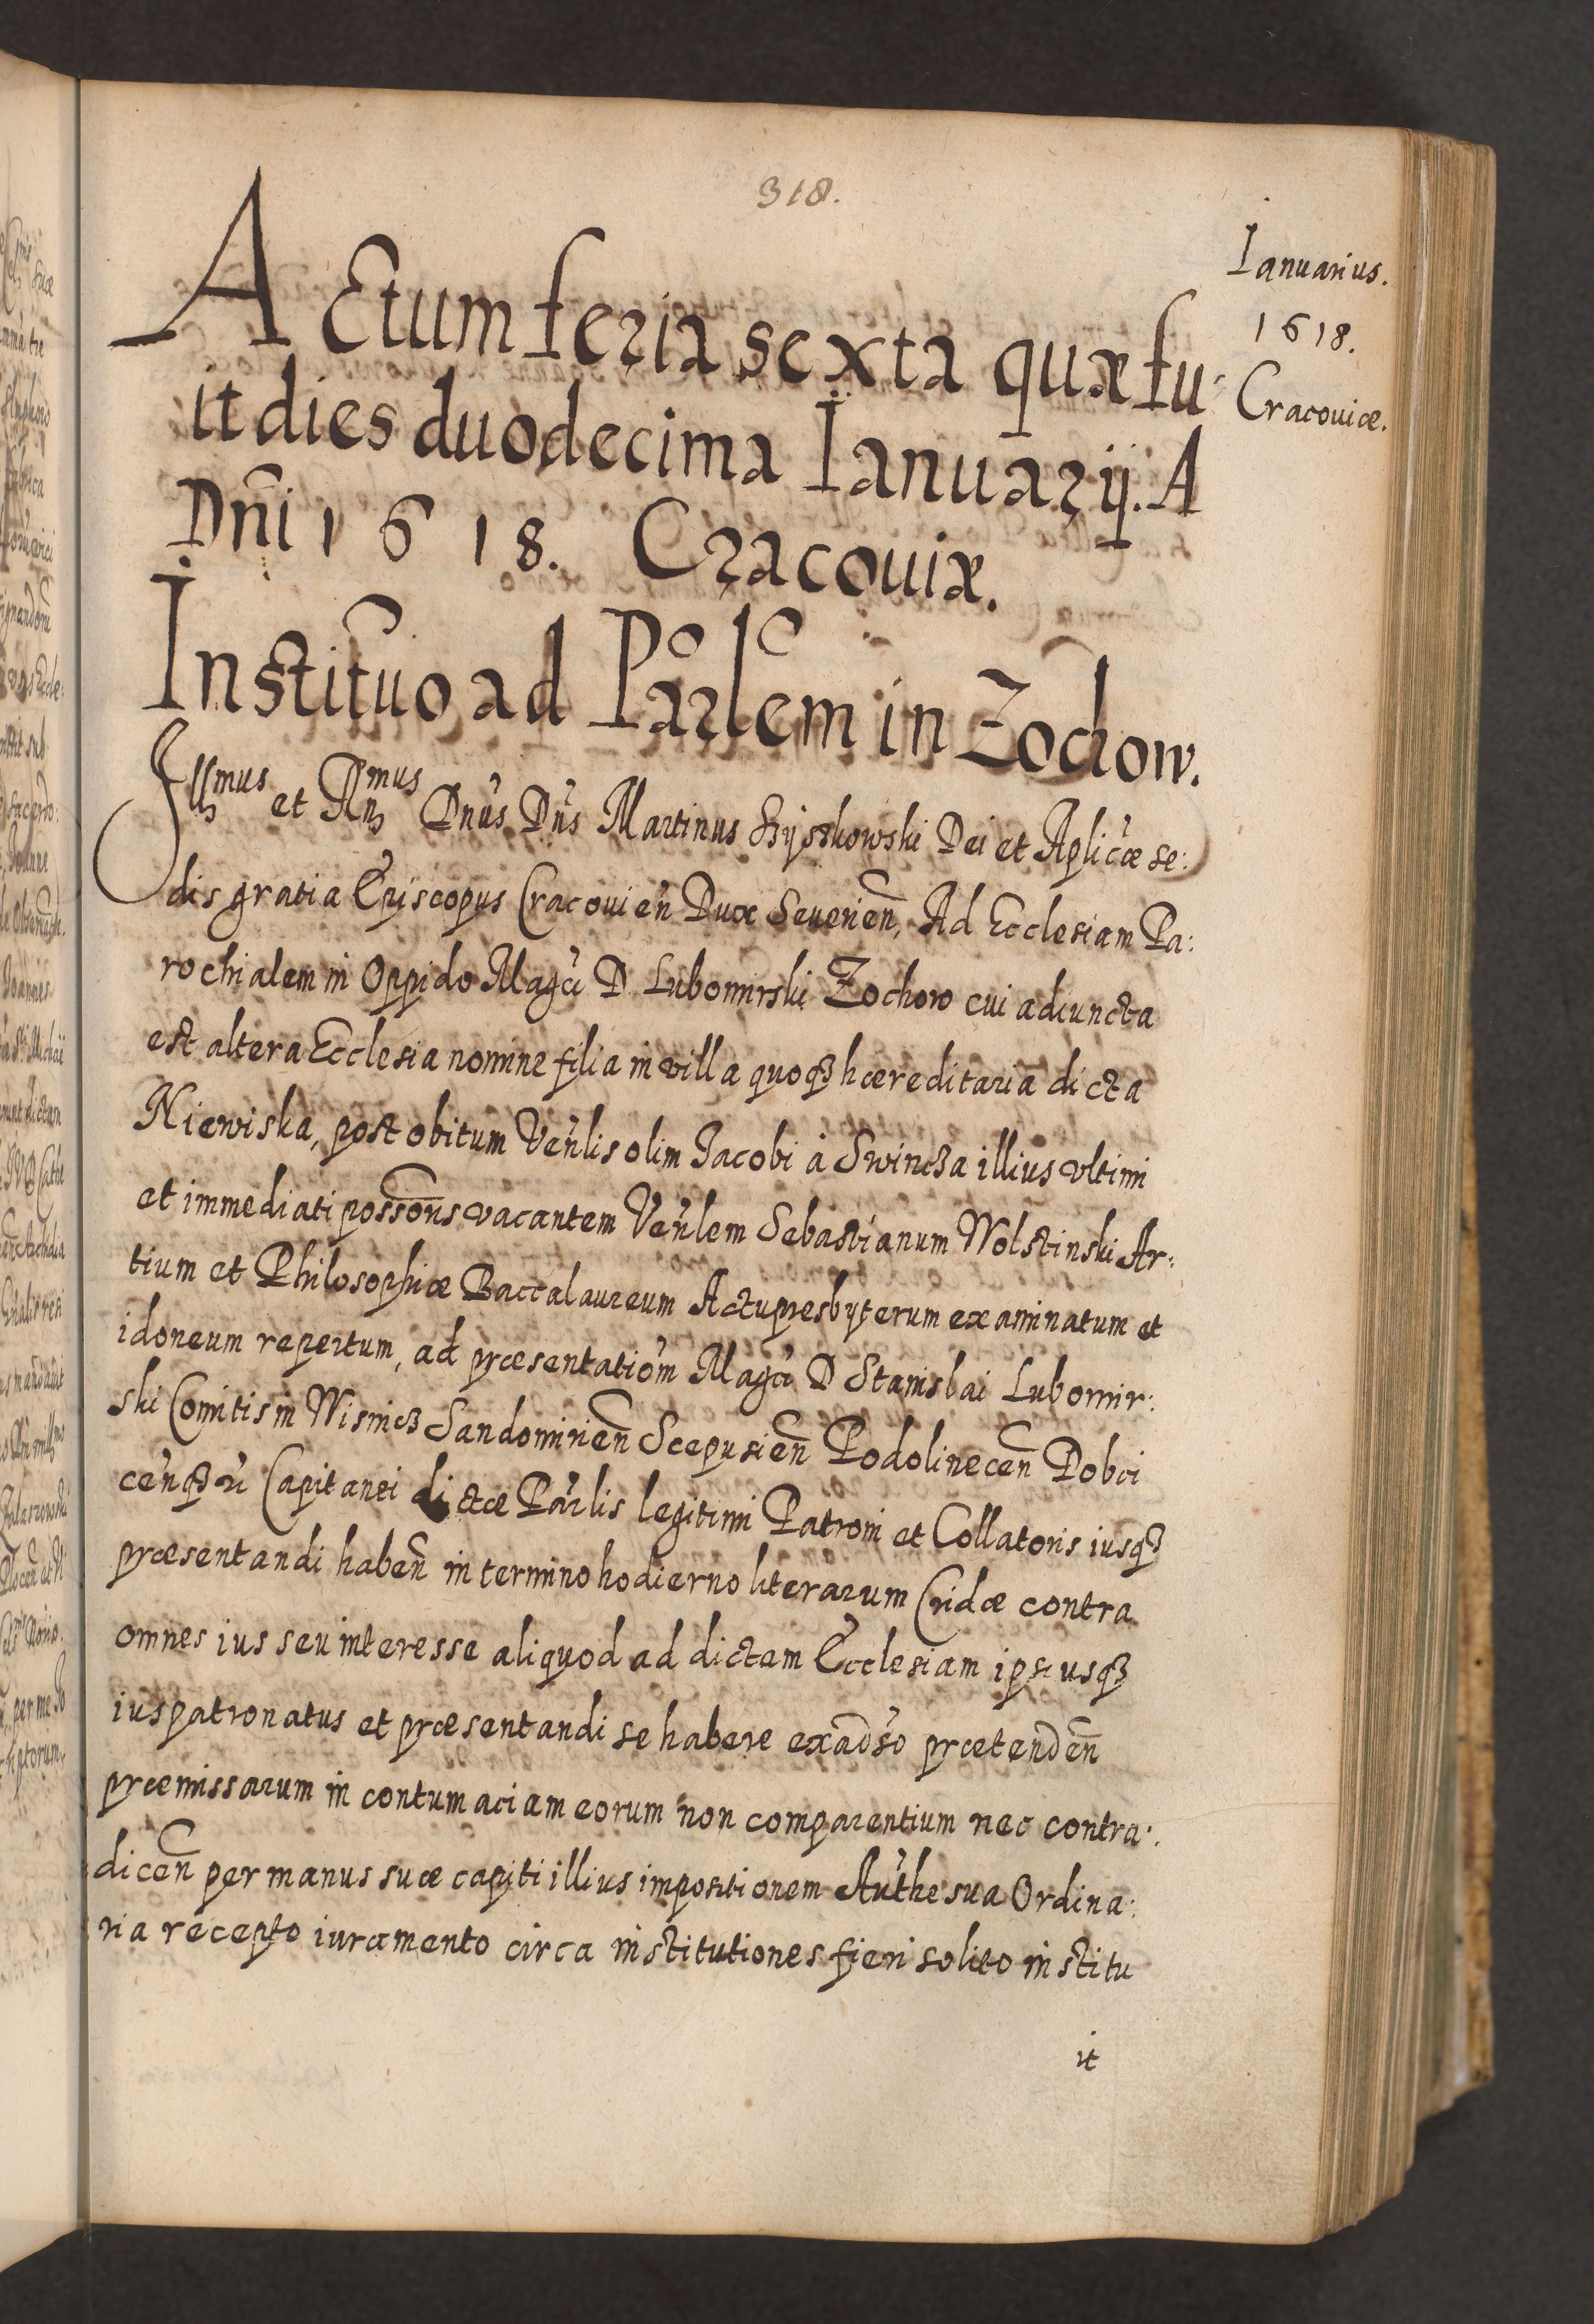 318.
Ianuarius.
1618.
Cracouiæ.
Actum feria sexta quæ fu:
it dies duodecima Ianuarij. A
Dñi 1618. Cracouiæ.
Institũo ad Pãrlem in Zochow.
Illmus et Rnmus Dnus Dns Martinus Szyszkowski Dei et Aplicæ se:
dis gratia Episcopus Cracouieñ Dux Seuerieñ, Ad Ecclesiam Pa:
rochialem in Oppido Magci D Lubomirski Zochow cui adiuncta
est altera Ecclesia nomine filia in villa quoqȝ hæreditaria dicta
Niewiska, post obitum Venlis olim Jacobi à Swincza illius vltimi
et immediati possons vacantem Venlem Sebastianum Wolstinski Ar:
tium et Philosophiæ Baccalaureum Actupresbyterum examinatum et
idoneum repertum, ad præsentatiom Magci D Stanislai Lubomir:
ski Comitis in Wisnicz Sandomirieñ Scepusieñ Podolineceñ Dobci
Capitanei dictæ Parlis legitimi Patroni et Collatoris iusqȝ
præsentandi habeñ in termino hodierno literarum Cridæ contra
omnes ius seu interesse aliquod ad dictam Ecclesiam ipsiusqȝ
iuspatronatus et præsentandi se habere exadso prætendeñ
præmissarum in contumaciam eorum non comparentium nec contra:
diceñ per manus suæ capiti illius impositionem Authe sua Ordina:
ria recepto iuramento circa institutiones fieri solito institu
it